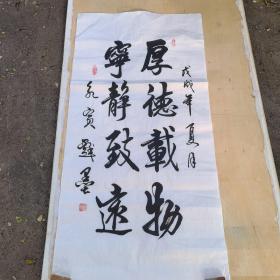 戊戌年夏月
厚德載物
寧静致遠
永寶
墨